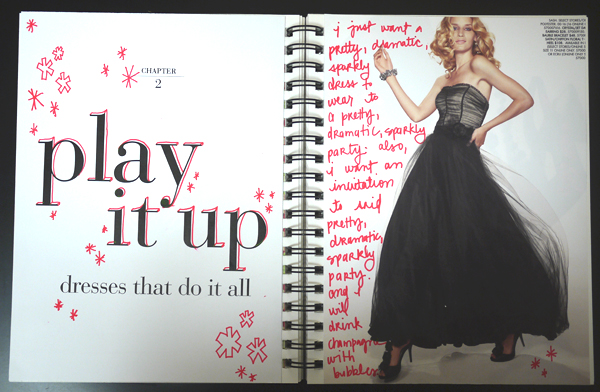 CHAPTER
2
play
it up
dresses that do it all
i just want a
pretty, dramatic,
sparkly
dress to
wear to
a pretty,
dramatic, sparkly
party. also,
i want an
invitation
to said
pretty,
dramatic,
sparkly
party.
and i
will
drink
champagne
with
bubbles.